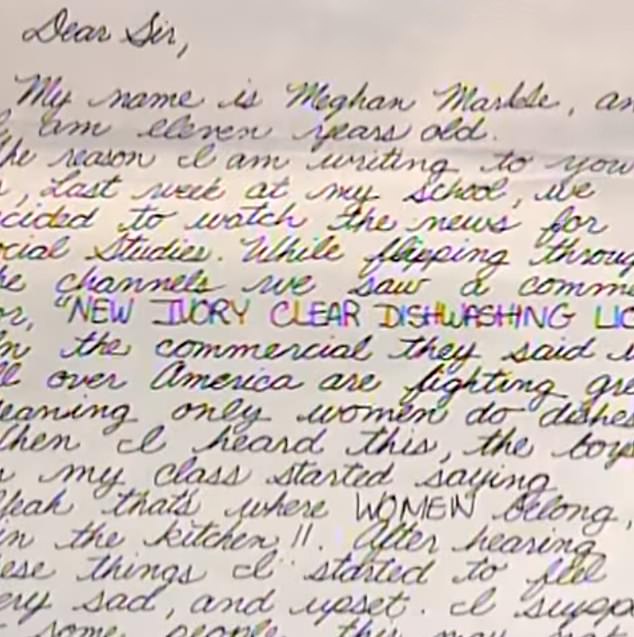 Dear Sir,
My name is Meghan Markle, an
I am eleven years old.
he reason I am writing to you
s, Last week at my school, we
cided to watch the news for
ocial Studies. While flipping throug
he channels we saw a comme
or, "NEW IVORY CLEAR DISHWASHING LIQ
In the commercial they said w
ll over America are fighting gre
eaning only women do dishes
hen I heard this, the boys
n my class started saying
Yeah that's where WOMEN belong,
in the kitchen!!. After hearing
ese things I started to feel
ery sad, and upset. I suppo
some people this may